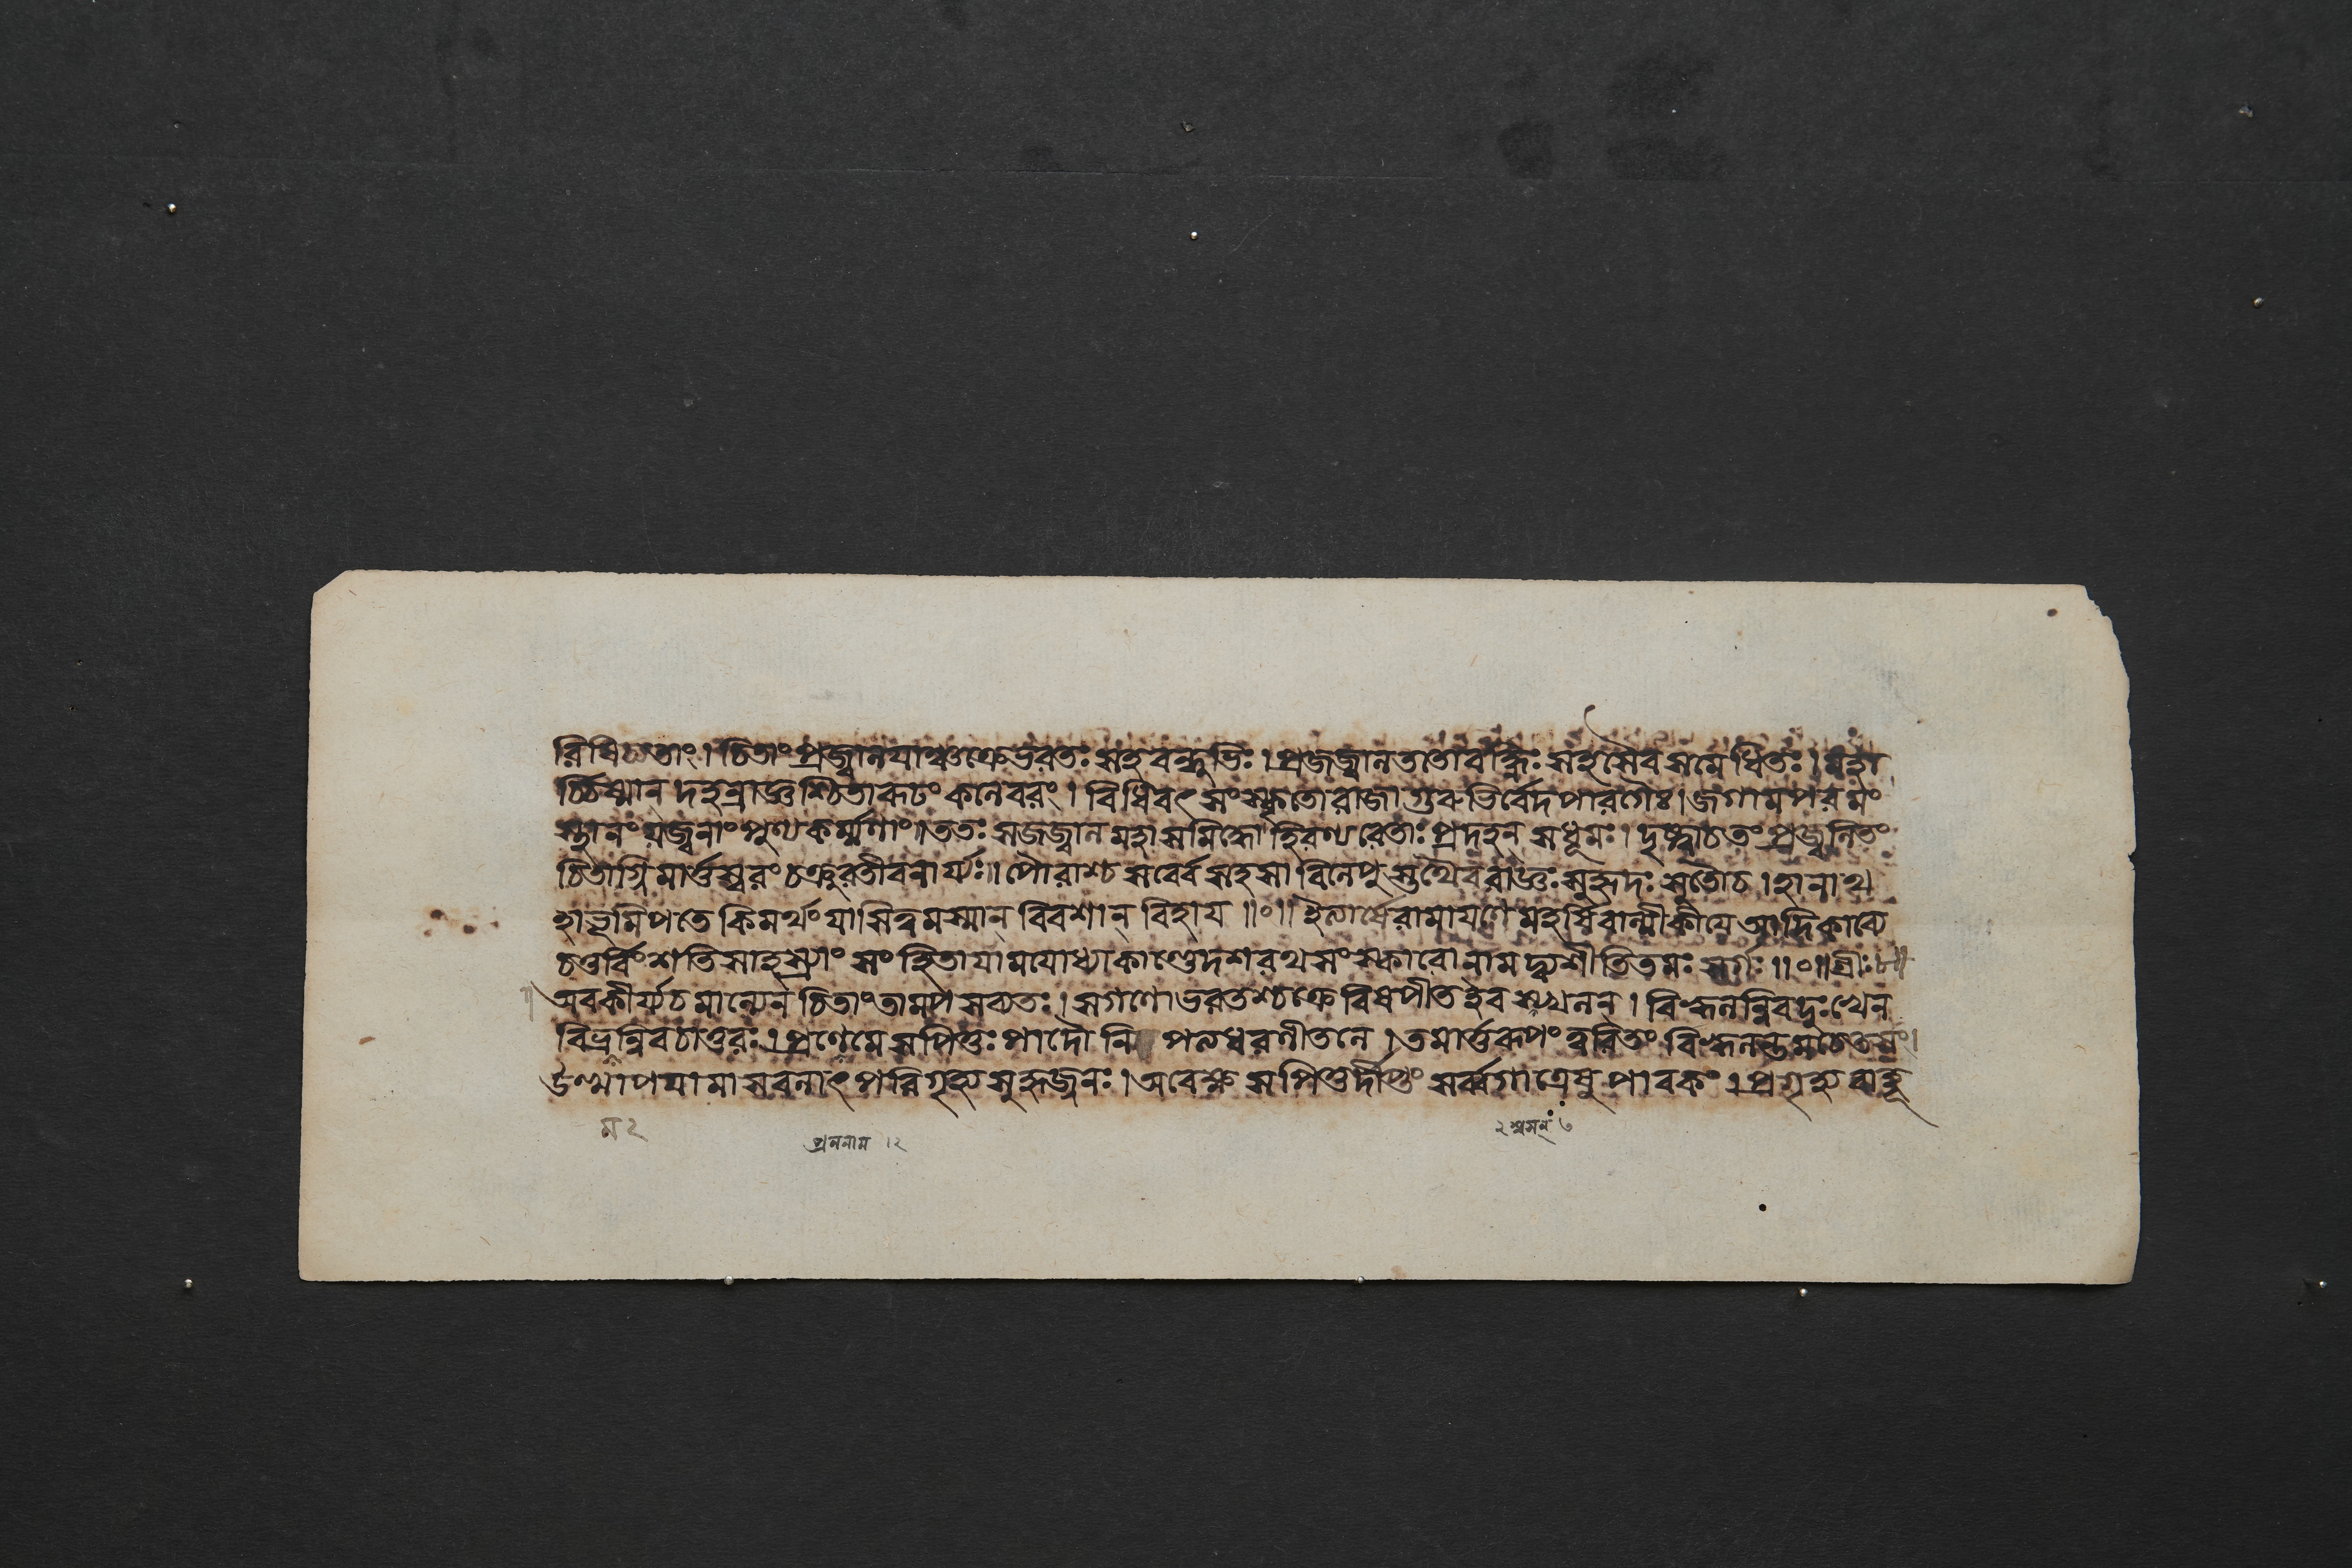 ৰিষিচতাং। চিতাং প্রজ্বালযাঞ্চক্রেভৰতঃ সহবন্ধুভিঃ। প্রজজ্বালততোবহ্নিঃ সহসৈবসমেধিতঃ। মহা
র্চ্চিষ্মান্ দহন্রাজ্ঞশ্চিতাৰূঢং কলেবৰং। বিধিবৎ সংস্কৃতোৰাজাগুৰুভির্বেদপাৰগৈঃ। জগামপৰমং
স্থানং যজ্বনাং পুণ্যকর্ম্মণাং॥ ততঃ সজজ্বাল মহাসমিদ্ধোহিৰণ্যৰেতাঃ প্রদহন্ সধূমঃ। দৃষ্ট্বাচতং প্রজ্বলিতং
চিতাগ্নিমার্ত্তস্বৰং চক্রুৰতীবনার্য্যঃ॥ পৌৰাশ্চ সর্বে সহসা বিলেপুস্তথৈবৰাজ্ঞঃ সুহৃদঃ সুতৌচ। হানাথ
হাভূমিপতে কিমর্থং যাসিত্বমস্মান্ বিবশান্ বিহায॥০॥ ইত্যার্ষেৰামাযণে মহর্ষিবাল্মীকীযে আদিকাব্যে
চতুর্বিংশতিসাহস্র্যাং সংহিতাযামযোধ্যাকাণ্ডেদশৰথসংস্কাৰোনামদ্ব্যশীতিতমঃ সর্গঃ॥০॥শ্রীঃ
অবকীর্য্যচমাল্যেন চিতাং তামপসব্যতঃ। সগণোভৰতশ্চক্রে বিষপীতইব স্খলন্। বিহ্বলন্নিবদুঃখেন
বিভ্রন্নিবচাতুৰঃ। প্রণেমে সপিতুঃ পাদৌ নি পত্যধৰণীতলে। তমার্ত্তৰূপং ত্বৰিতং বিহ্বলন্তমচেতসং।
উত্থাপযামাসবলাৎ পৰিগৃহ্য সুহৃজ্জনঃ। অবেক্ষ্য সপিতুর্দীপ্তং সর্ব্বগাত্রেষু পাবকং। প্রগৃহ্য বাহূ
ম২
প্রননাম।২